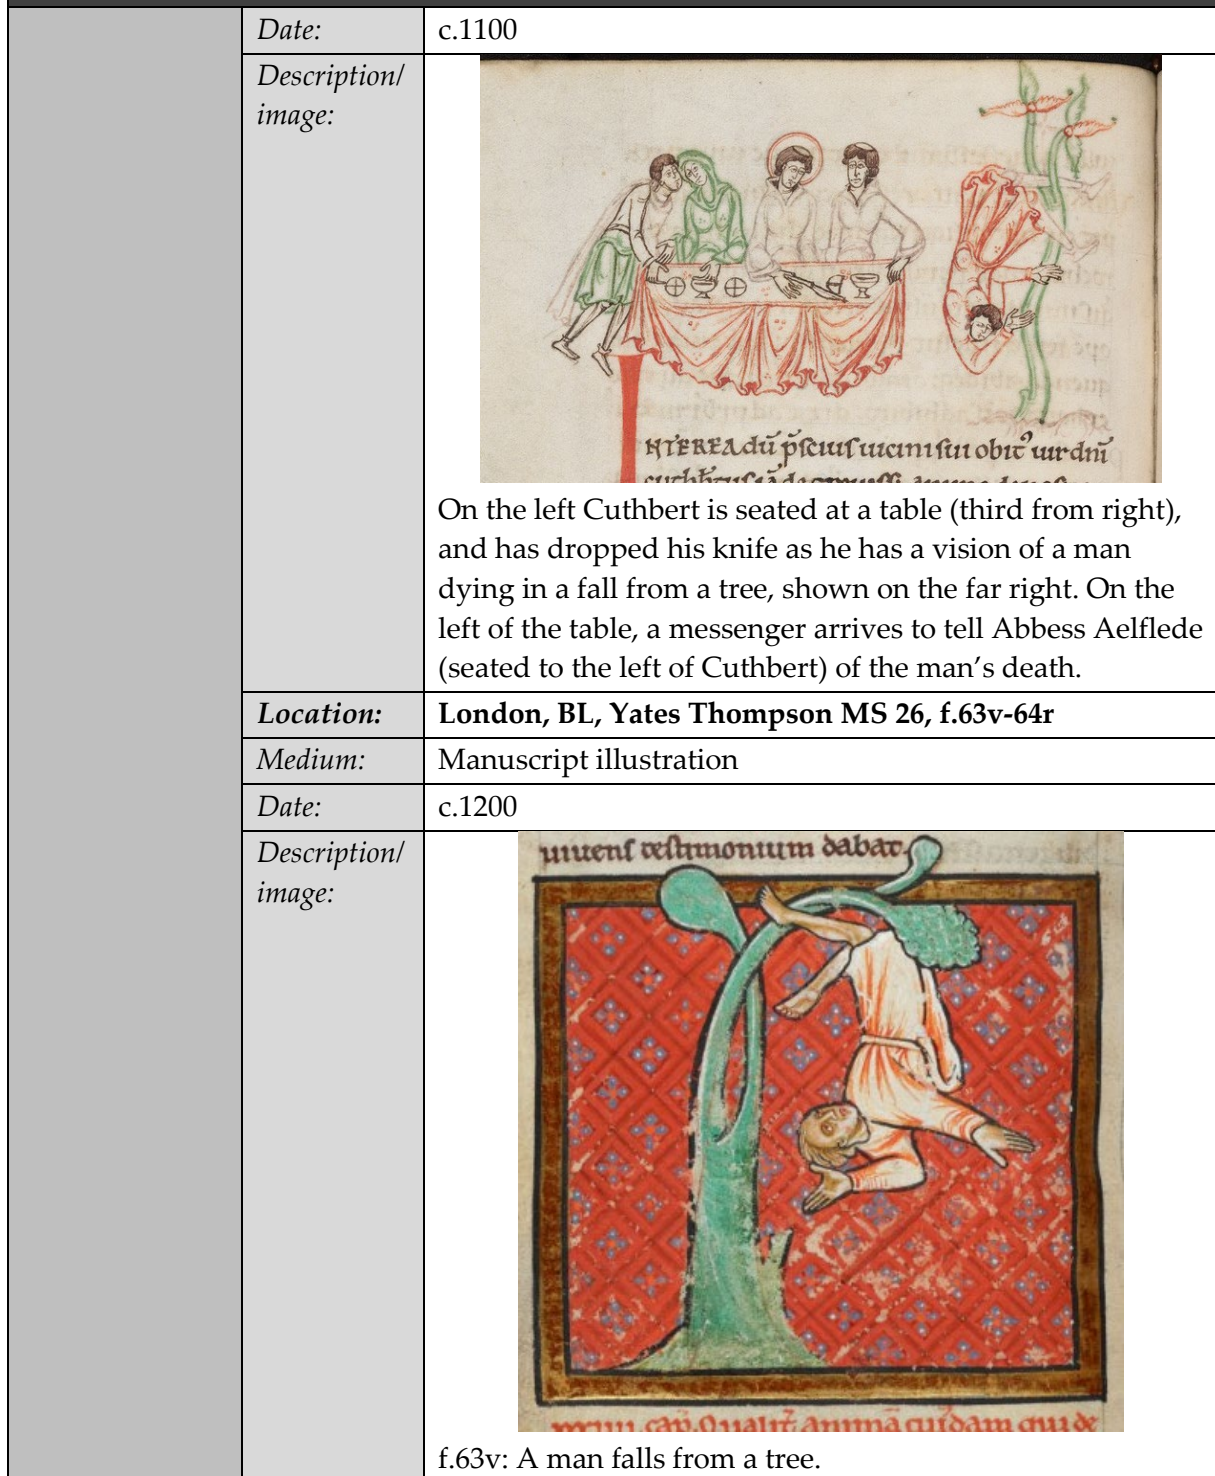 Date:
c.1100
Description/
image:
NTEREA dū
obit
On the left Cuthbert is seated at a table (third from right),
and has dropped his knife as he has a vision of a man
dying in a fall from a tree, shown on the far right. On the
left of the table, a messenger arrives to tell Abbess Aelflede
(seated to the left of Cuthbert) of the man’s death.
Location:
London, BL, Yates Thompson MS 26, f.63v-64r
Medium:
Manuscript illustration
Date:
c.1200
Description/
image:
uiuens testimonium dabat.
f.63v: A man falls from a tree.